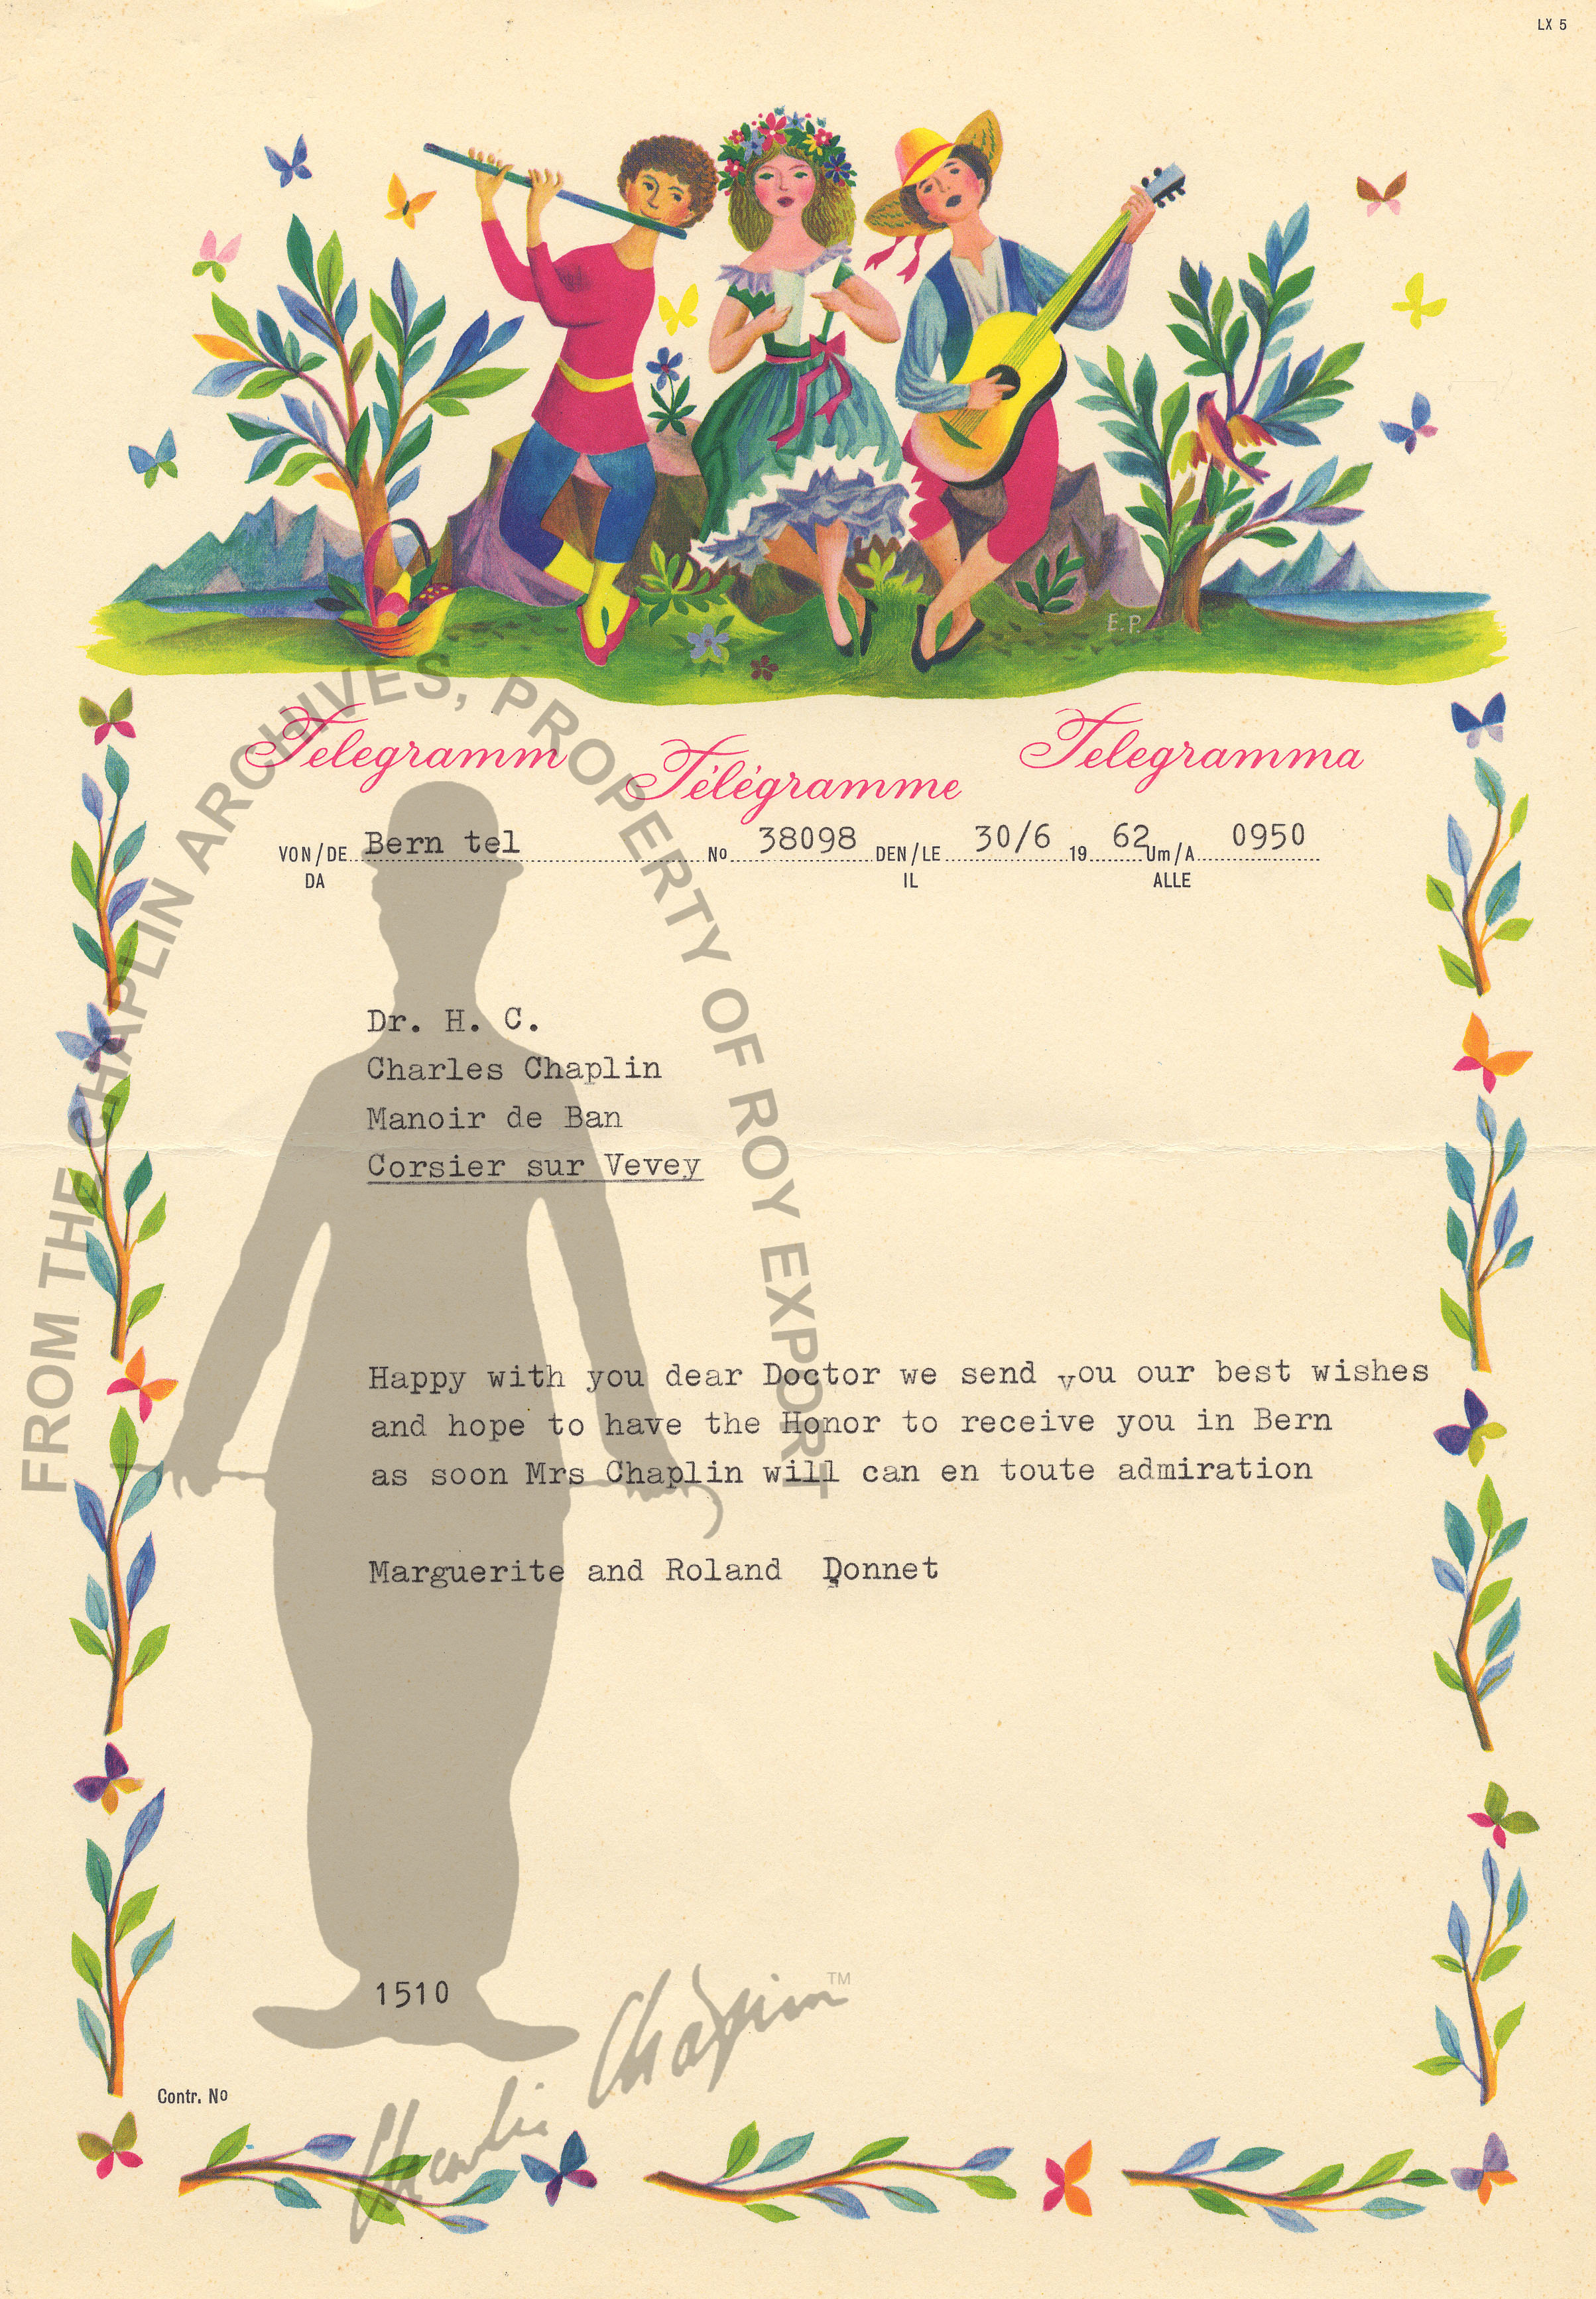 LX 5
E.P.
Telegramm Télégramme Telegramma
VON/DE Bern tel No 38098 DEN/LE 30/6 19 62 Um/A 0950
DA IL ALLE
Dr. H. C.
Charles Chaplin
Manoir de Ban
Corsier sur Vevey
Happy with you dear Doctor we send you our best wishes
and hope to have the Honor to receive you in Bern
as soon Mrs Chaplin will can en toute admiration
Marguerite and Roland Donnet
1510
Contr. No
FROM THE CHAPLIN ARCHIVES, PROPERTY OF ROY EXPORT
Charlie Chaplin TM